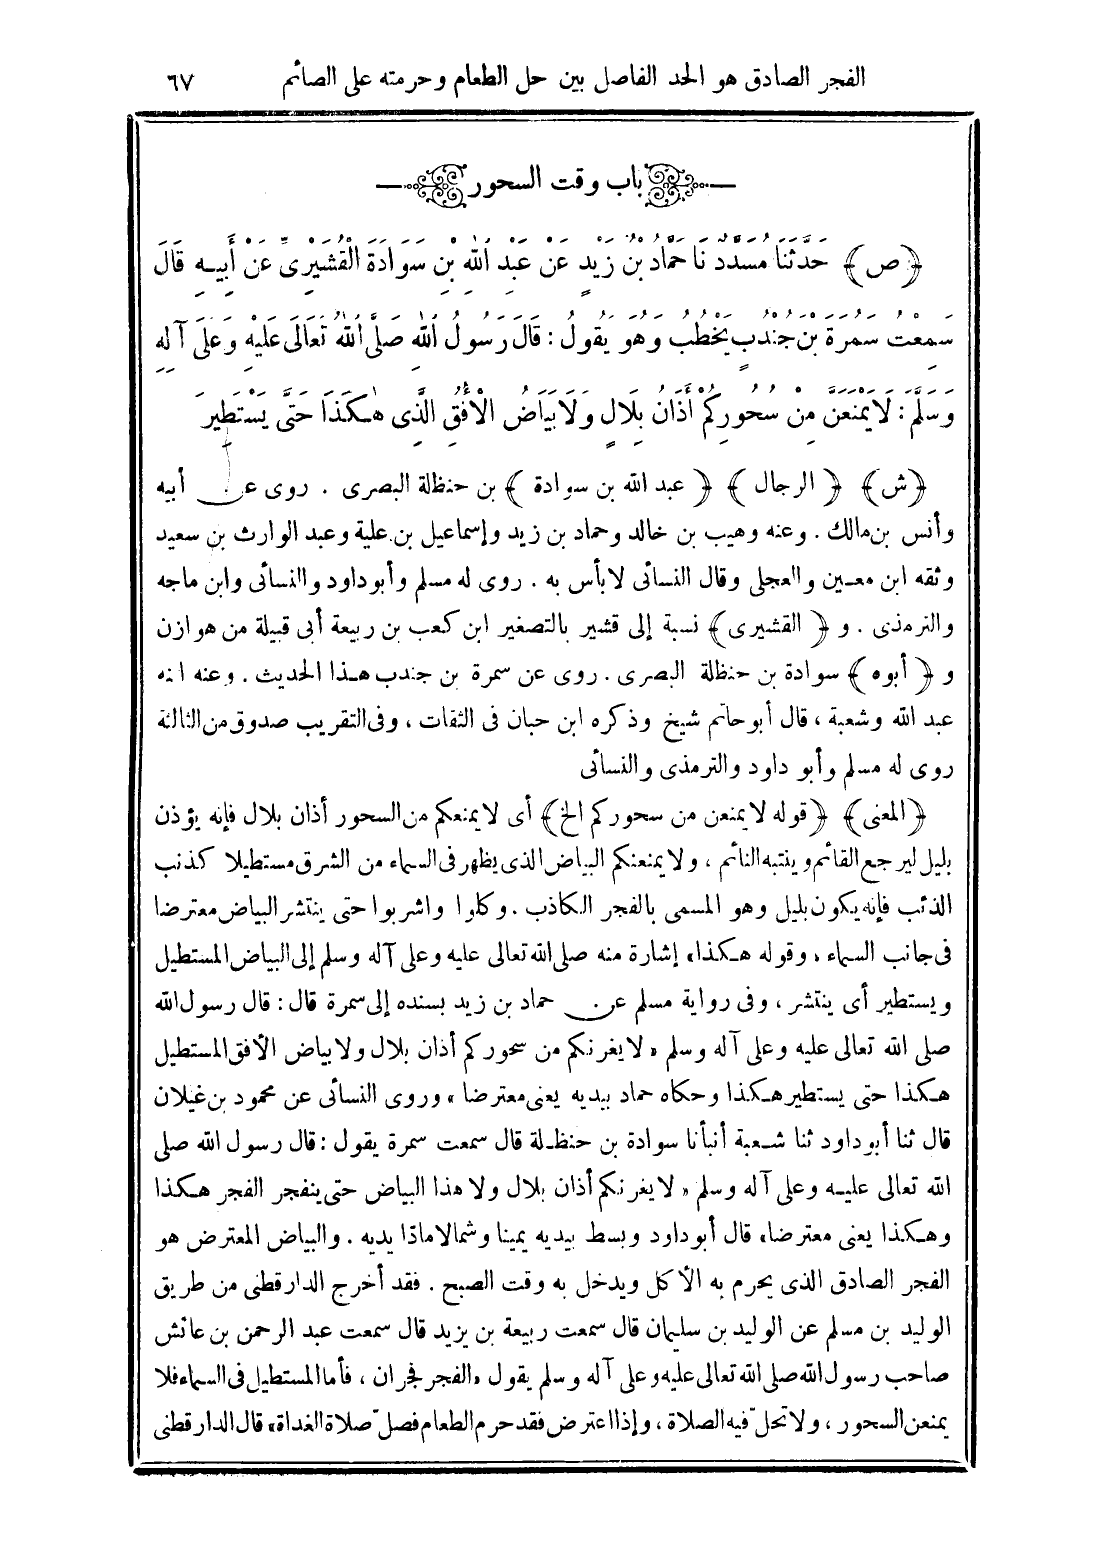 الفجر الصادق هو الحد الفاصل بين حل الطعام وحرمته على الصائم ٦٧
باب وقت السحور
﴿ص﴾ حَدَّثَنَا مُسَدَّدٌ نَا حَمَّادُ بْنُ زَيْدٍ عَنْ عَبْدِ اللهِ بْنِ سَوَادَةَ الْقُشَيْرِىِّ عَنْ أَبِيهِ قَالَ
سَمِعْتُ سَمُرَةَ بْنَ جُنْدُبٍ يَخْطُبُ وَهُوَ يَقُولُ : قَالَ رَسُولُ اللهِ صَلَّى اللهُ تَعَالَى عَلَيْهِ وَعَلَى آلِهِ
وَسَلَّمَ : لَا يَمْنَعَنَّ مِنْ سُحُورِكُمْ أَذَانُ بِلَالٍ وَلَا بَيَاضُ الْأُفُقِ الَّذِى هٰكَذَا حَتَّى يَسْتَطِيرَ
﴿ش﴾ ﴿الرجال﴾ ﴿عبد الله بن سوادة﴾ بن حنظلة البصرى . روى عن أبيه
وأنس بن مالك . وعنه وهيب بن خالد وحماد بن زيد وإسماعيل بن علية وعبد الوارث بن سعيد
وثقه ابن معين والعجلى وقال النسائى لا بأس به . روى له مسلم وأبو داود والنسائى وابن ماجه
والترمذى . و ﴿القشيرى﴾ نسبة إلى قشير بالتصغير ابن كعب بن ربيعة أبى قبيلة من هوازن
و ﴿أبوه﴾ سوادة بن حنظلة البصرى . روى عن سمرة بن جندب هذا الحديث . وعنه ابنه
عبد الله وشعبة ، قال أبو حاتم شيخ وذكره ابن حبان فى الثقات ، وفى التقريب صدوق من الثالثة
روى له مسلم وأبو داود والترمذى والنسائى
﴿المعنى﴾ ﴿قوله لا يمنعن من سحوركم الخ﴾ أى لا يمنعكم من السحور أذان بلال فإنه يؤذن
بليل ليرجع القائم وينتبه النائم ، ولا يمنعنكم البياض الذى يظهر فى السماء من الشرق مستطيلا كذنب
الذئب فإنه يكون بليل وهو المسمى بالفجر الكاذب . وكلوا واشربوا حتى ينتشر البياض معترضا
فى جانب السماء ، وقوله هكذا، إشارة منه صلى الله تعالى عليه وعلى آله وسلم إلى البياض المستطيل
ويستطير أى ينتشر ، وفى رواية مسلم عن حماد بن زيد بسنده إلى سمرة قال : قال رسول الله
صلى الله تعالى عليه وعلى آله وسلم « لا يغرنكم من سحوركم أذان بلال ولا بياض الأفق المستطيل
هكذا حتى يستطير هكذا وحكاه حماد بيديه يعنى معترضا » وروى النسائى عن محمود بن غيلان
قال ثنا أبو داود ثنا شعبة أنبأنا سوادة بن حنظلة قال سمعت سمرة يقول : قال رسول الله صلى
الله تعالى عليه وعلى آله وسلم « لا يغرنكم أذان بلال ولا هذا البياض حتى ينفجر الفجر هكذا
وهكذا يعنى معترضا» قال أبو داود وبسط بيديه يمينا وشمالا مادّا يديه . والبياض المعترض هو
الفجر الصادق الذى يحرم به الأكل ويدخل به وقت الصبح . فقد أخرج الدارقطنى من طريق
الوليد بن مسلم عن الوليد بن سليمان قال سمعت ربيعة بن يزيد قال سمعت عبد الرحمن بن عائش
صاحب رسول الله صلى الله تعالى عليه وعلى آله وسلم يقول «الفجر فجران ، فأما المستطيل فى السماء فلا
يمنعن السحور ، ولا تحلّ فيه الصلاة ، وإذا اعترض فقد حرم الطعام فصلّ صلاة الغداة» قال الدارقطنى